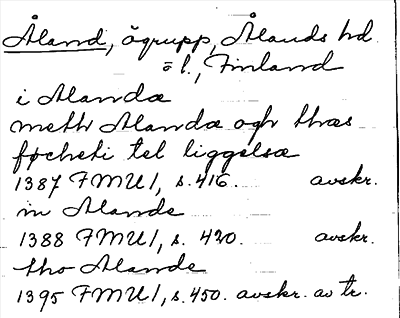 Åland, ögrupp, Ålands hd.
o l., Finland
i Alandæ
meth Alandæ och thæs
føcheti tel liggelsæ
1387 FMU 1, s. 416. avskr.
in Alande
1388 FMU 1, s. 420. avskr.
tho Alande
1395 FMU 1, s. 450. avskr. av tr.